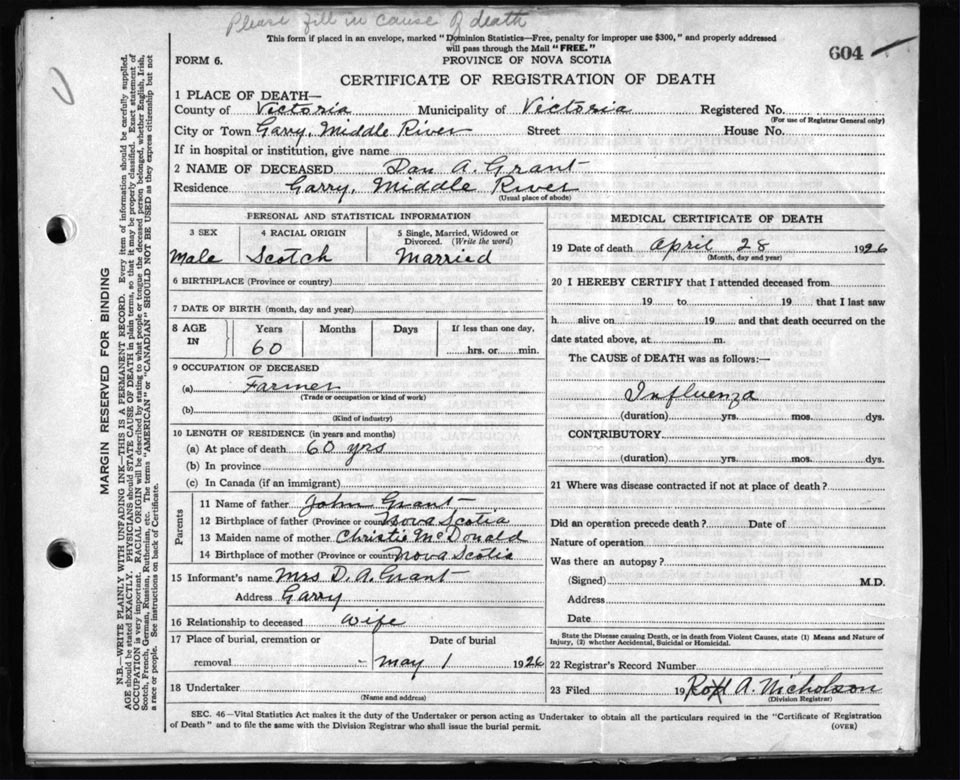 Please fill in cause of death
This form if placed in an envelope, marked "Dominion Statistics—Free, penalty for improper use $300," and properly addressed
will pass through the Mail "FREE."
604
FORM 6.
PROVINCE OF NOVA SCOTIA
CERTIFICATE OF REGISTRATION OF DEATH
1 PLACE OF DEATH—
County of Victoria Municipality of Victoria Registered No.
(For use of Registrar General only)
City or Town Garry, Middle River Street House No.
If in hospital or institution, give name
2 NAME OF DECEASED Dan A. Grant
Residence Garry, Middle River
(Usual place of abode)
PERSONAL AND STATISTICAL INFORMATION
3 SEX 4 RACIAL ORIGIN 5 Single, Married, Widowed or
Divorced. (Write the word)
Male Scotch Married
6 BIRTHPLACE (Province or country)
7 DATE OF BIRTH (month, day and year)
8 AGE IN Years Months Days If less than one day,
60 hrs. or min.
9 OCCUPATION OF DECEASED
(a) Farmer
(Trade or occupation or kind of work)
(b)
(Kind of industry)
10 LENGTH OF RESIDENCE (in years and months)
(a) At place of death 60 yrs
(b) In province
(c) In Canada (if an immigrant)
Parents
11 Name of father John Grant
12 Birthplace of father (Province or country) Nova Scotia
13 Maiden name of mother Christie McDonald
14 Birthplace of mother (Province or country) Nova Scotia
15 Informant's name Mrs D. A. Grant
Address Garry
16 Relationship to deceased Wife
17 Place of burial, cremation or Date of burial
removal May 1 1926
18 Undertaker
(Name and address)
MEDICAL CERTIFICATE OF DEATH
19 Date of death April 28 1926
(Month, day and year)
20 I HEREBY CERTIFY that I attended deceased from
19 to 19 that I last saw
h alive on 19 and that death occurred on the
date stated above, at m.
The CAUSE of DEATH was as follows:—
Influenza
(duration) yrs. mos. dys.
CONTRIBUTORY
(duration) yrs. mos. dys.
21 Where was disease contracted if not at place of death?
Did an operation precede death? Date of
Nature of operation
Was there an autopsy?
(Signed) M.D.
Address
Date
State the Disease causing Death, or in death from Violent Causes, state (1) Means and Nature of
Injury, (2) whether Accidental, Suicidal or Homicidal.
22 Registrar's Record Number
23 Filed 19 A. Nicholson
(Division Registrar)
SEC. 46—Vital Statistics Act makes it the duty of the Undertaker or person acting as Undertaker to obtain all the particulars required in the "Certificate of Registration
of Death" and to file the same with the Division Registrar who shall issue the burial permit. (OVER)
MARGIN RESERVED FOR BINDING
N.B.—WRITE PLAINLY WITH UNFADING INK—THIS IS A PERMANENT RECORD. Every item of information should be carefully supplied.
AGE should be stated EXACTLY. PHYSICIANS should STATE CAUSE OF DEATH in plain terms, so that it may be properly classified. Exact statement of
OCCUPATION is very important. RACIAL ORIGIN will be described by stating to what people or tongue the deceased person belonged, whether English, Irish,
Scotch, French, German, Russian, Ruthenian, etc. The terms "AMERICAN" or "CANADIAN" SHOULD NOT BE USED as they express citizenship but not
a race or people. See instructions on back of Certificate.